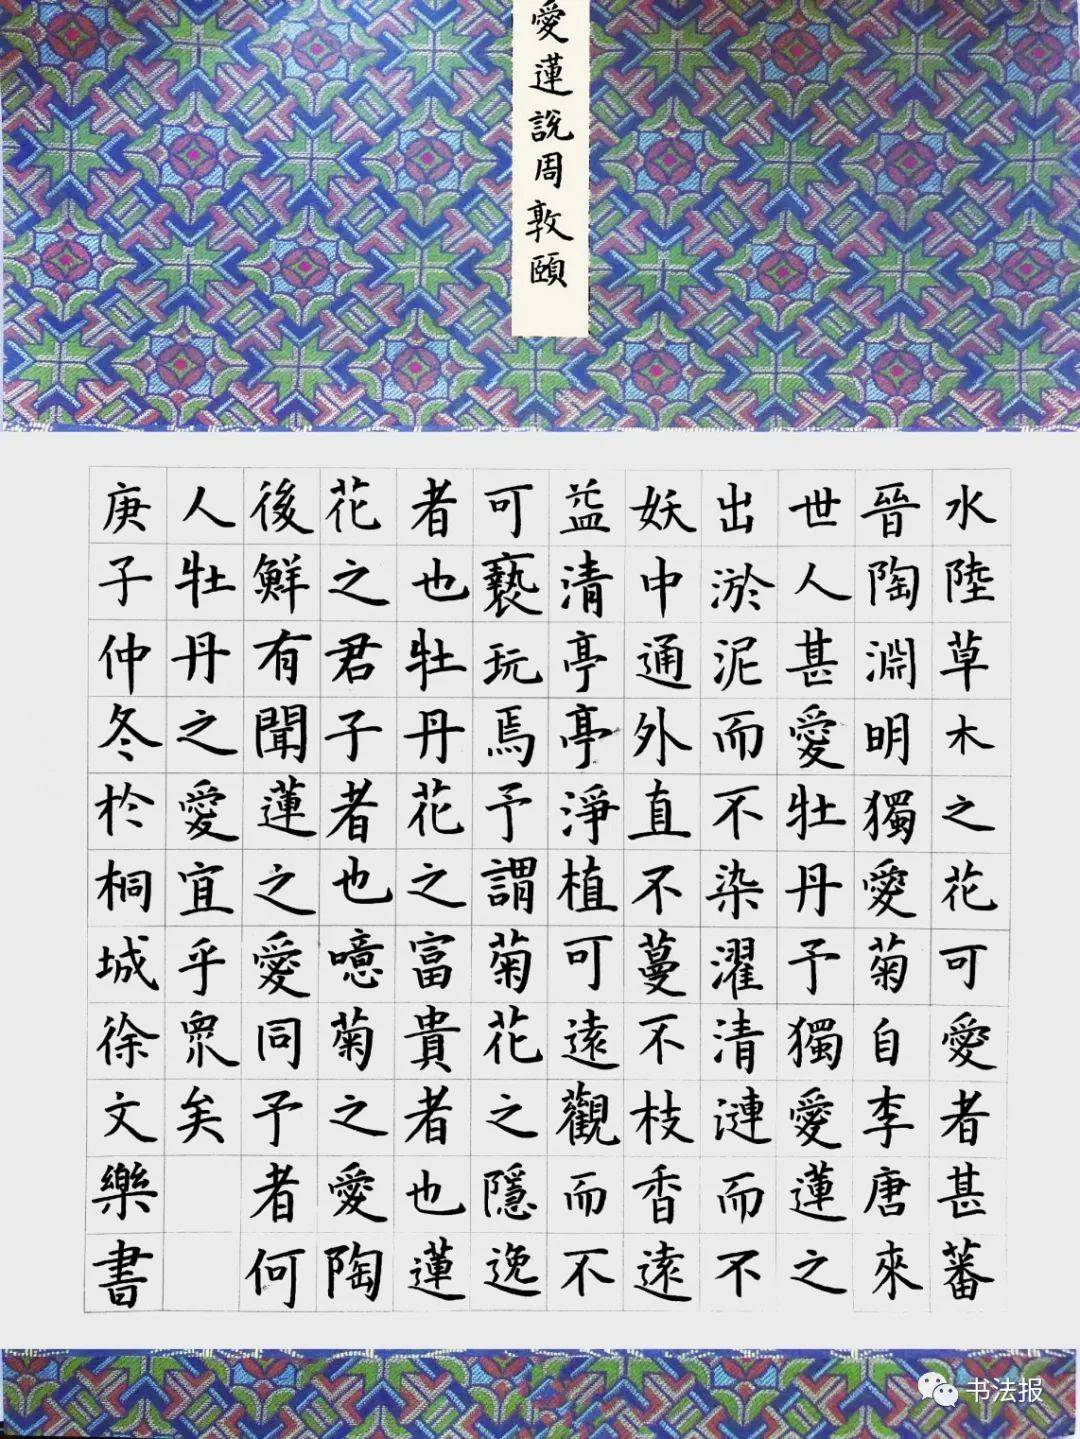 愛蓮說周敦頤
水陸草木之花可愛者甚蕃
晉陶淵明獨愛菊自李唐來
世人甚愛牡丹予獨愛蓮之
出淤泥而不染濯清漣而不
妖中通外直不蔓不枝香遠
益清亭亭淨植可遠觀而不
可褻玩焉予謂菊花之隱逸
者也牡丹花之富貴者也蓮
花之君子者也噫菊之愛陶
後鮮有聞蓮之愛同予者何
人牡丹之愛宜乎眾矣
庚子仲冬於桐城徐文樂書
书法报